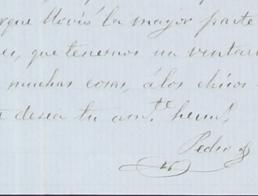 rque llovió la mayor parte
que tenemos un
muchas cosas, á los chicos
desea tu am.te herm.o
Pedro